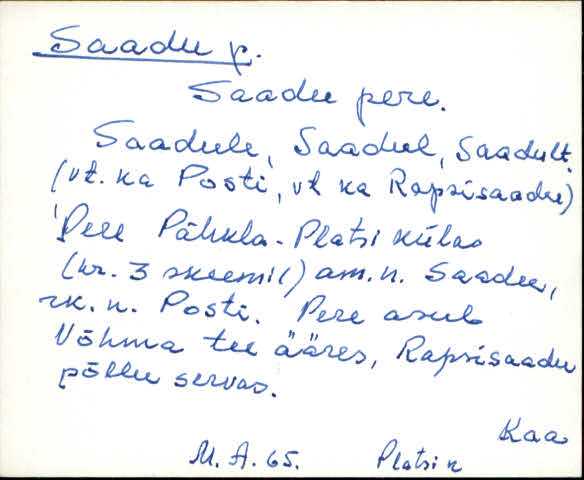 Saadu p.
Saadu pere.
Saadule, Saadul, Saadult.
(vt. ka Posti, vt ka Rapsisaadu)
Pere Pähkla-Platsi külas
(nr. 3 skeemil) am.n. Saadu,
rk. n. Posti. Pere asub
Võhma tee ääres, Rapsisaadu
põllu servas.
Kaa
M. A. 65. Platsi k